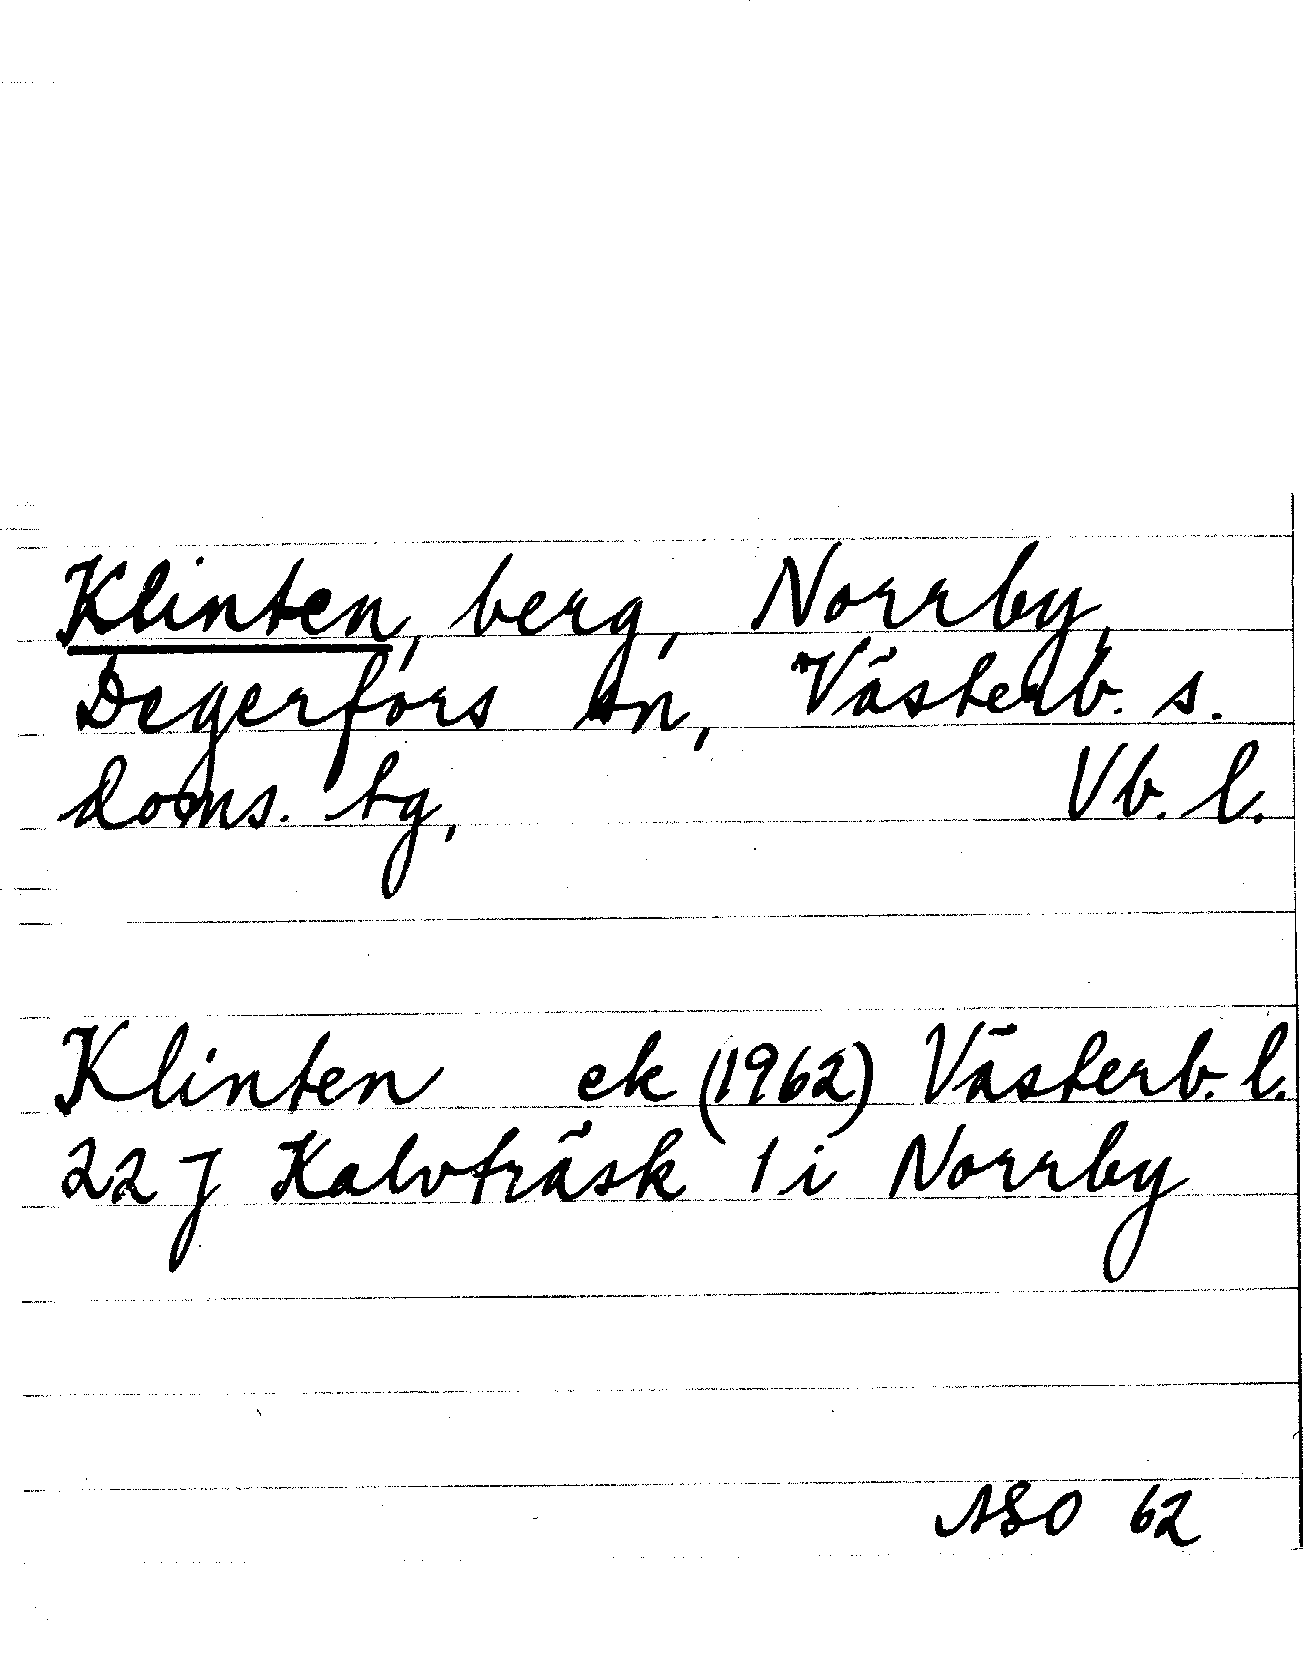 Klinten, berg, Norrby,
Degerfors sn, Västerb. s.
doms. tg, Vb. l.
Klinten ek (1962) Västerb. l.
22 J Kalvträsk 1 i Norrby
ASO 62